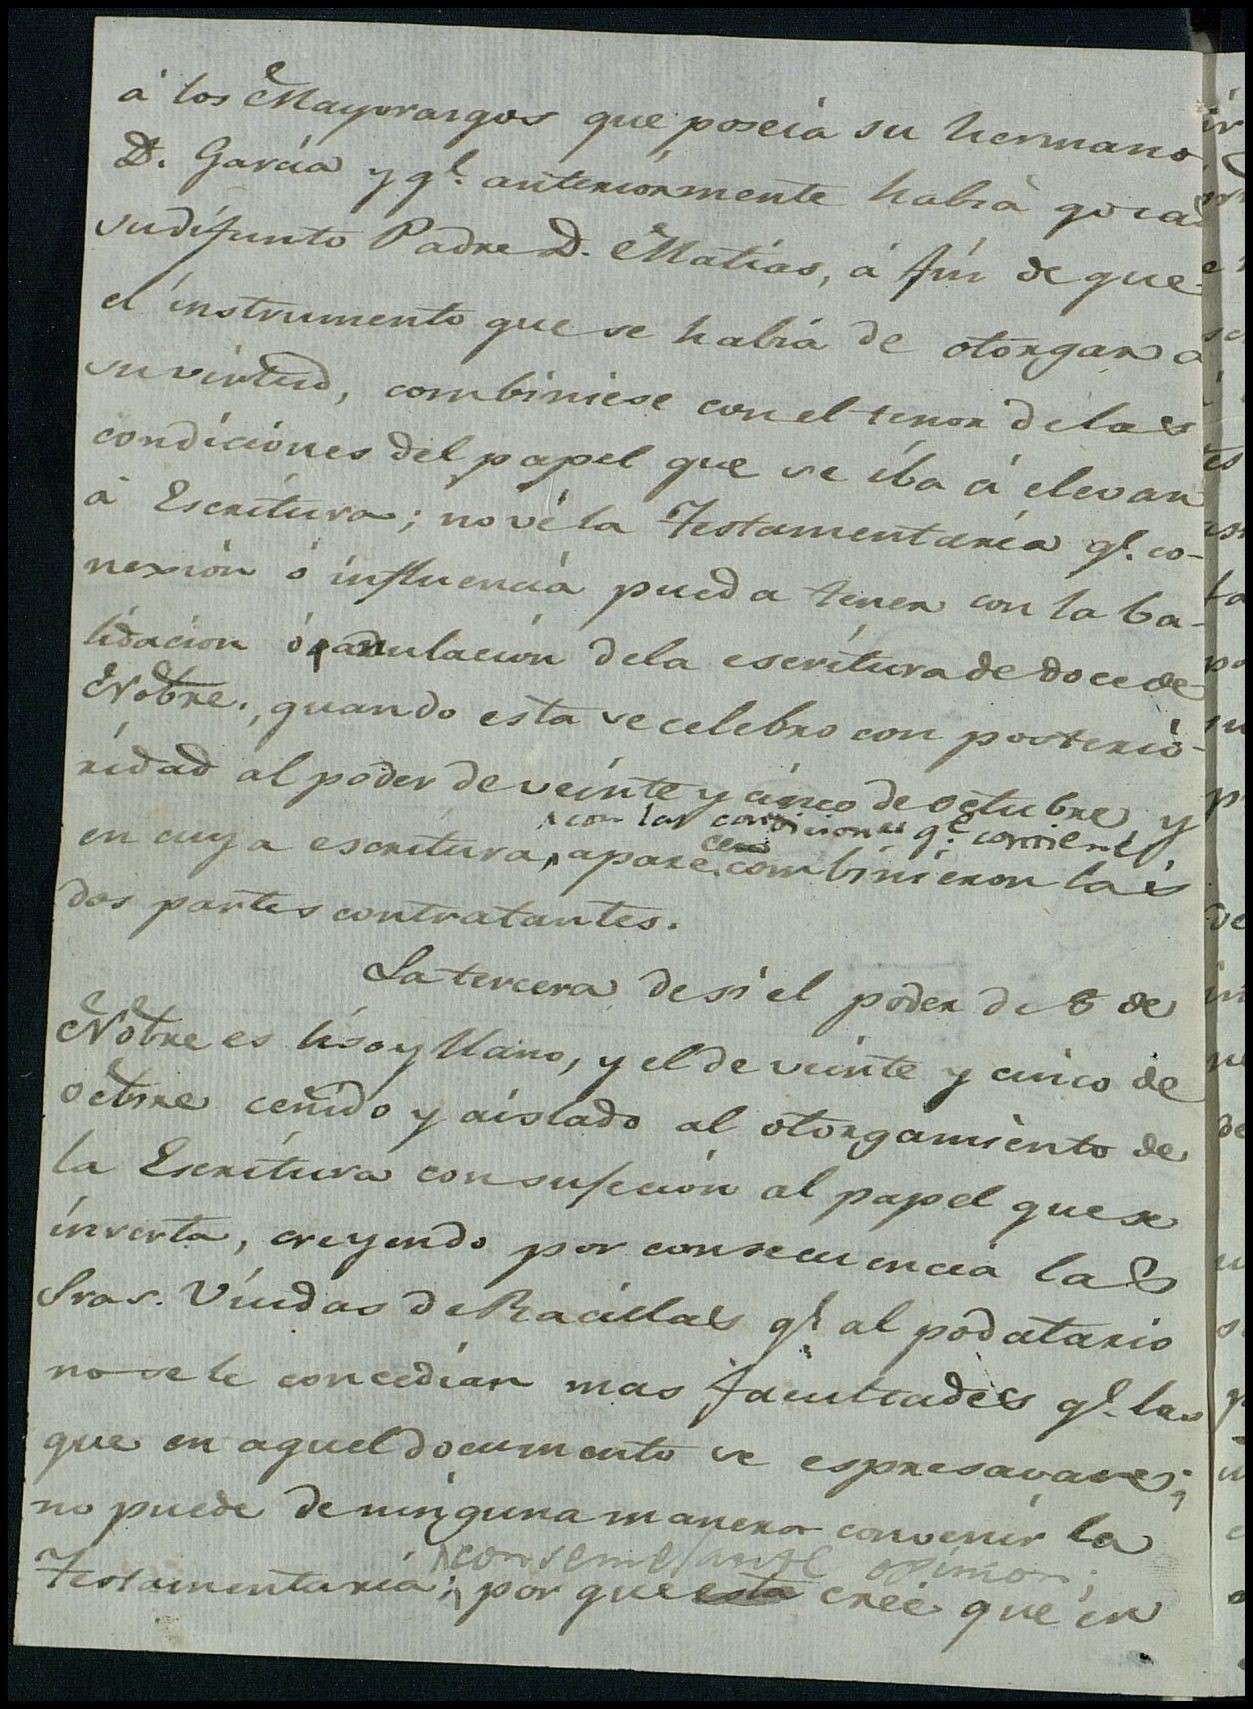 à los Mayorazgos que poseía su hermano
D. Garcia y q.e anteriormente habia goza
su difunto Padre D. Matias, à fin de que
el instrumento que se habia de otorgar a
su virtud, combiniese con el tenor de las
condiciones del papel que se iba à elevar
à Escritura; no vé la Testamentaria q.e co-
nexion ò influencia pueda tener con la ba-
lidacion ò anulacion de la escritura de doce de
Nobre., quando esta se celebro con posterio-
ridad al poder de veinte y cinco de octubre, y
con las condiciones q.e contiene
en cuya escritura, aparece combinieron las
dos partes contratantes.
La tercera de si el poder de 8 de
Nobre es liso y llano, y el de veinte y cinco de
octbre ceñido y aislado al otorgamiento de
la Escritura con sujecion al papel que se
inserta, creyendo por consecuencia las
Sras. Viudas de Racillas q.e al podatario
no se le concedian mas facultades q.e las
que en aquel documento se espresavan;
no puede de ninguna manera convenir la
con semejante opinion;
Testamentaria; por que esta cree que en